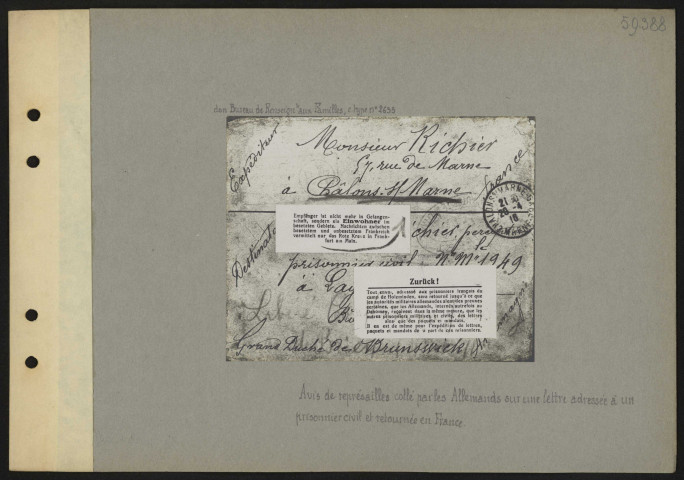 59388
don Bureau de Renseignts aux Familles, clype n° 2693
Expéditeur
Monsieur Richier
57, rue de Marne
à Châlons s/ Marne
France
CHALONS-S-MARNE
MARNE
Empfänger ist nicht mehr in Gefangen-
schaft, sondern als Einwohner im
besetzten Gebiete. Nachrichten zwischen
besetztem und unbesetztem Frankreich
vermittelt nur das Rote Kreuz in Frank-
furt am Main.
1
Richier père
prisonnier civil - N° Mle 1949
à
Zurück!
Tout envoi, adressé aux prisonniers français du
camp de Holzminden, sera retourné jusqu'à ce que
les autorités militaires allemandes aient des preuves
certaines, que les Allemands, internés autrefois au
Dahomey, reçoivent dans la même mesure, que les
autres prisonniers militaires et civils, des lettres
ainsi que des paquets et mandats.
Il en est de même pour l'expédition de lettres,
paquets et mandats de la part de ces prisonniers.
Grand Duché de Brunswick
Avis de représailles collé par les Allemands sur une lettre adressée à un
prisonnier civil et retournée en France.